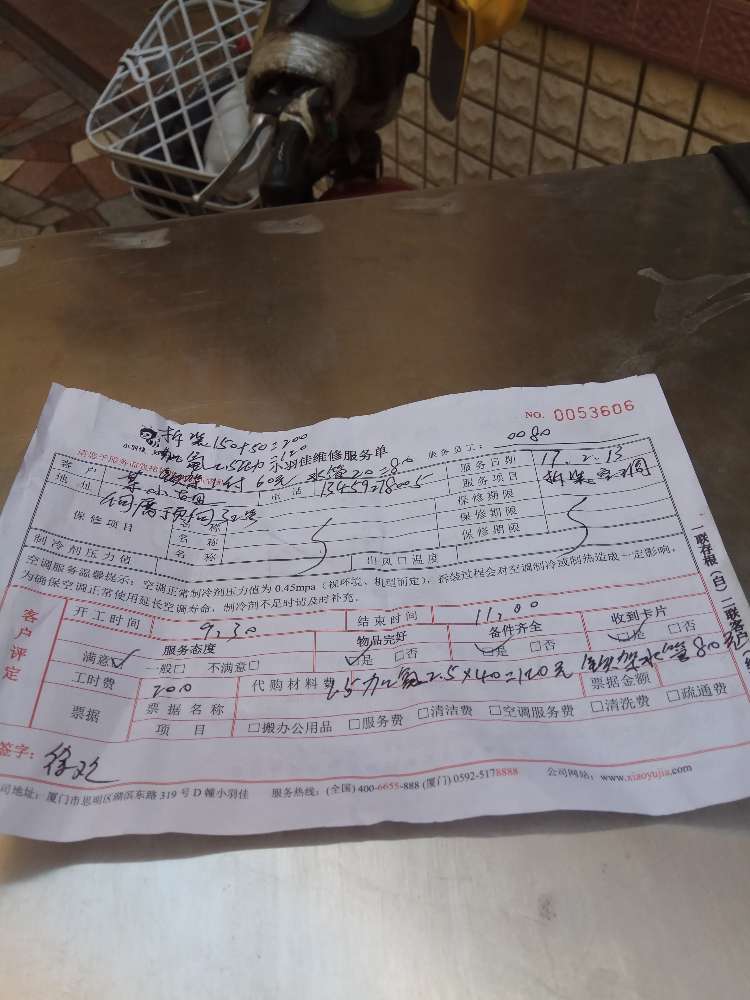 NO. 0053606
拆装150+50=200
小羽佳维修服务单
服务员号: 0080
加氟 2.5×40=120
支架1付60元 水管20=80
客户
地址
电话 13459218005
服务日期 17.2.13
服务项目 拆装空调
保修项目
名称
名称
名称
保修期限
保修期限
保修期限
制冷剂压力值
出风口温度
空调服务温馨提示:空调正常制冷剂压力值为 0.45mpa(视环境、机型而定),拆装过程会对空调制冷或制热造成一定影响,
为确保空调正常使用延长空调寿命,制冷剂不足时请及时补充。
客户评定
开工时间 9:30
结束时间 11:00
服务态度
物品完好
备件齐全
收到卡片
满意✓ 一般□ 不满意□
☑是 □否
☑是 □否
☑是 □否
工时费 200
代购材料费 加氟2.5×40=120元 支架水管80元
票据金额
票据
票据名称
项目 □搬办公用品 □服务费 □清洁费 □空调服务费 □清洗费 □疏通费
签字:
司地址:厦门市思明区湖滨东路 319 号 D 幢小羽佳 服务热线:(全国) 400-6655-888 (厦门) 0592-5178888 公司网站:www.xiaoyujia.com
一联存根(白) 二联客户